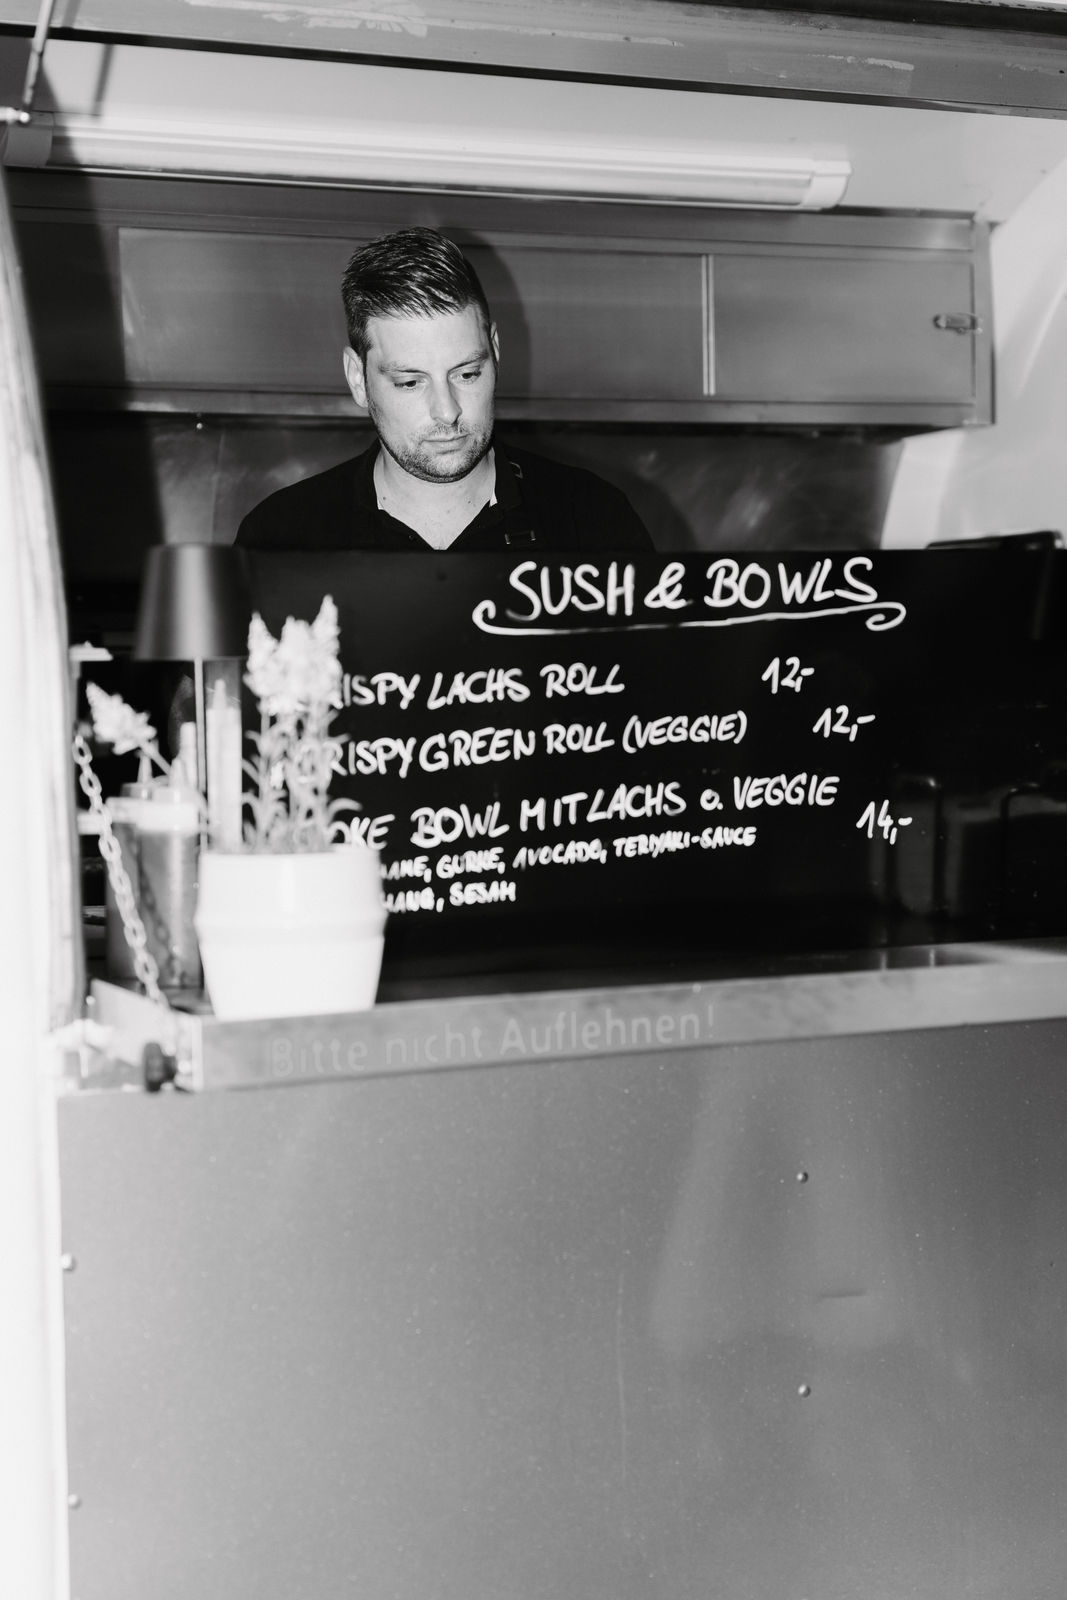 SUSH & BOWLS
RISPY LACHS ROLL 12,-
CRISPY GREEN ROLL (VEGGIE) 12,-
OKE BOWL MIT LACHS o. VEGGIE 14,-
GURKE, AVOCADO, TERIYAKI-SAUCE
SESAM
Bitte nicht Auflehnen!